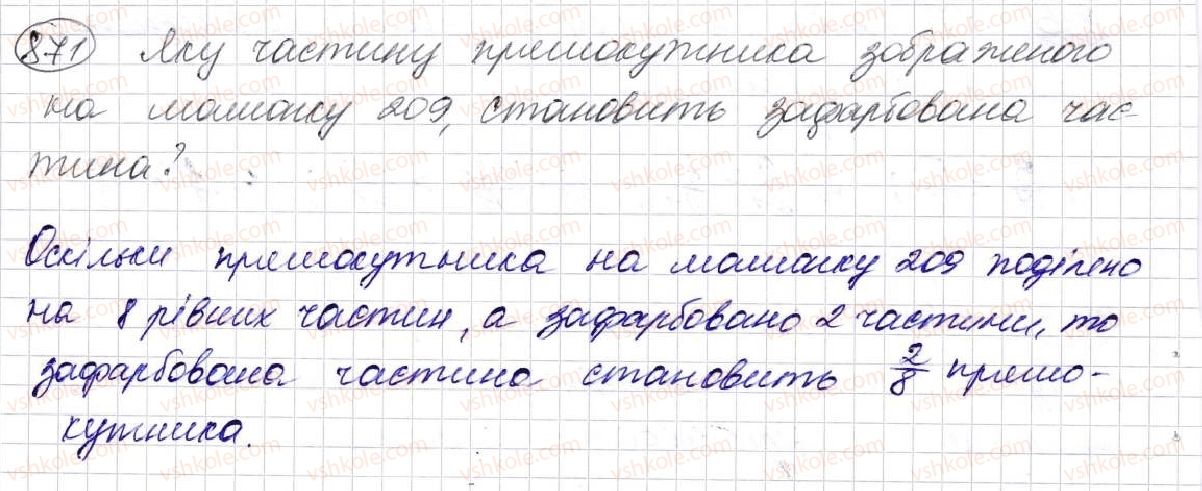 871 Яку частину прямокутника зображеного
на малюнку 209, становить зафарбована час-
тина?
Оскільки прямокутника на малюнку 209 поділено
на 8 рівних частин, а зафарбовано 2 частини, то
зафарбована частина становить 2/8 прямо-
кутника.